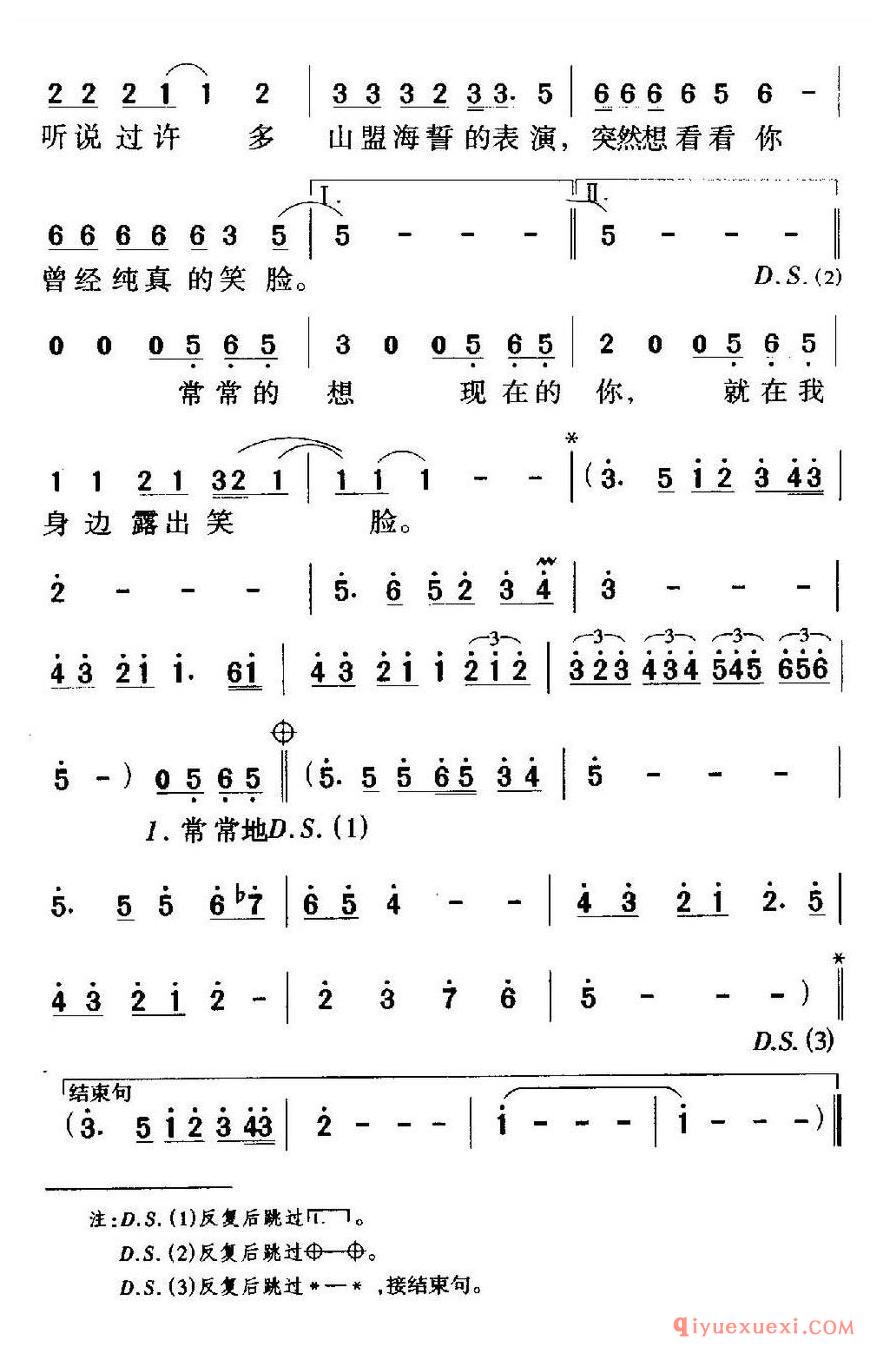 2 2 2 1 1 2 | 3 3 3 2 3 3. 5 | 6 6 6 6 5 6 - |
听说过许 多 山盟海誓的表演，突然想看看你
I. II.
6 6 6 6 6 3 5 | 5 - - - || 5 - - - ||
曾经纯真的笑脸。 D.S.(2)
0 0 0 5 6 5 | 3 0 0 5 6 5 | 2 0 0 5 6 5 |
常常的 想 现在的 你， 就在我
*
1 1 2 1 3 2 1 | 1 1 1 - - | (3. 5 1 2 3 4 3 |
身边露出笑 脸。
2 - - - | 5. 6 5 2 3 4 | 3 - - - |
3 3 3 3 3
4 3 2 1 1. 6 1 | 4 3 2 1 1 2 1 2 | 3 2 3 4 3 4 5 4 5 6 5 6 |
5 -) 0 5 6 5 || (5. 5 5 6 5 3 4 | 5 - - - |
1. 常常地D.S.(1)
5. 5 5 6 ♭7 | 6 5 4 - - | 4 3 2 1 2. 5 |
*
4 3 2 1 2 - | 2 3 7 6 | 5 - - -) ||
D.S.(3)
结束句
(3. 5 1 2 3 4 3 | 2 - - - | 1 - - - | 1 - - -) ||
注：D.S.(1)反复后跳过I. 。
D.S.(2)反复后跳过⊕—⊕。
D.S.(3)反复后跳过*—*，接结束句。
qiyuexuexi.COM